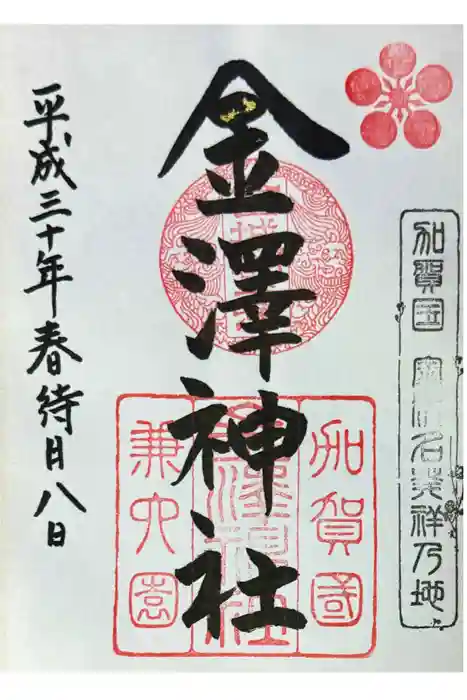 加賀国
名発祥乃地
金澤神社
平成三十年春待月八日
加賀國
金澤神社
兼六園